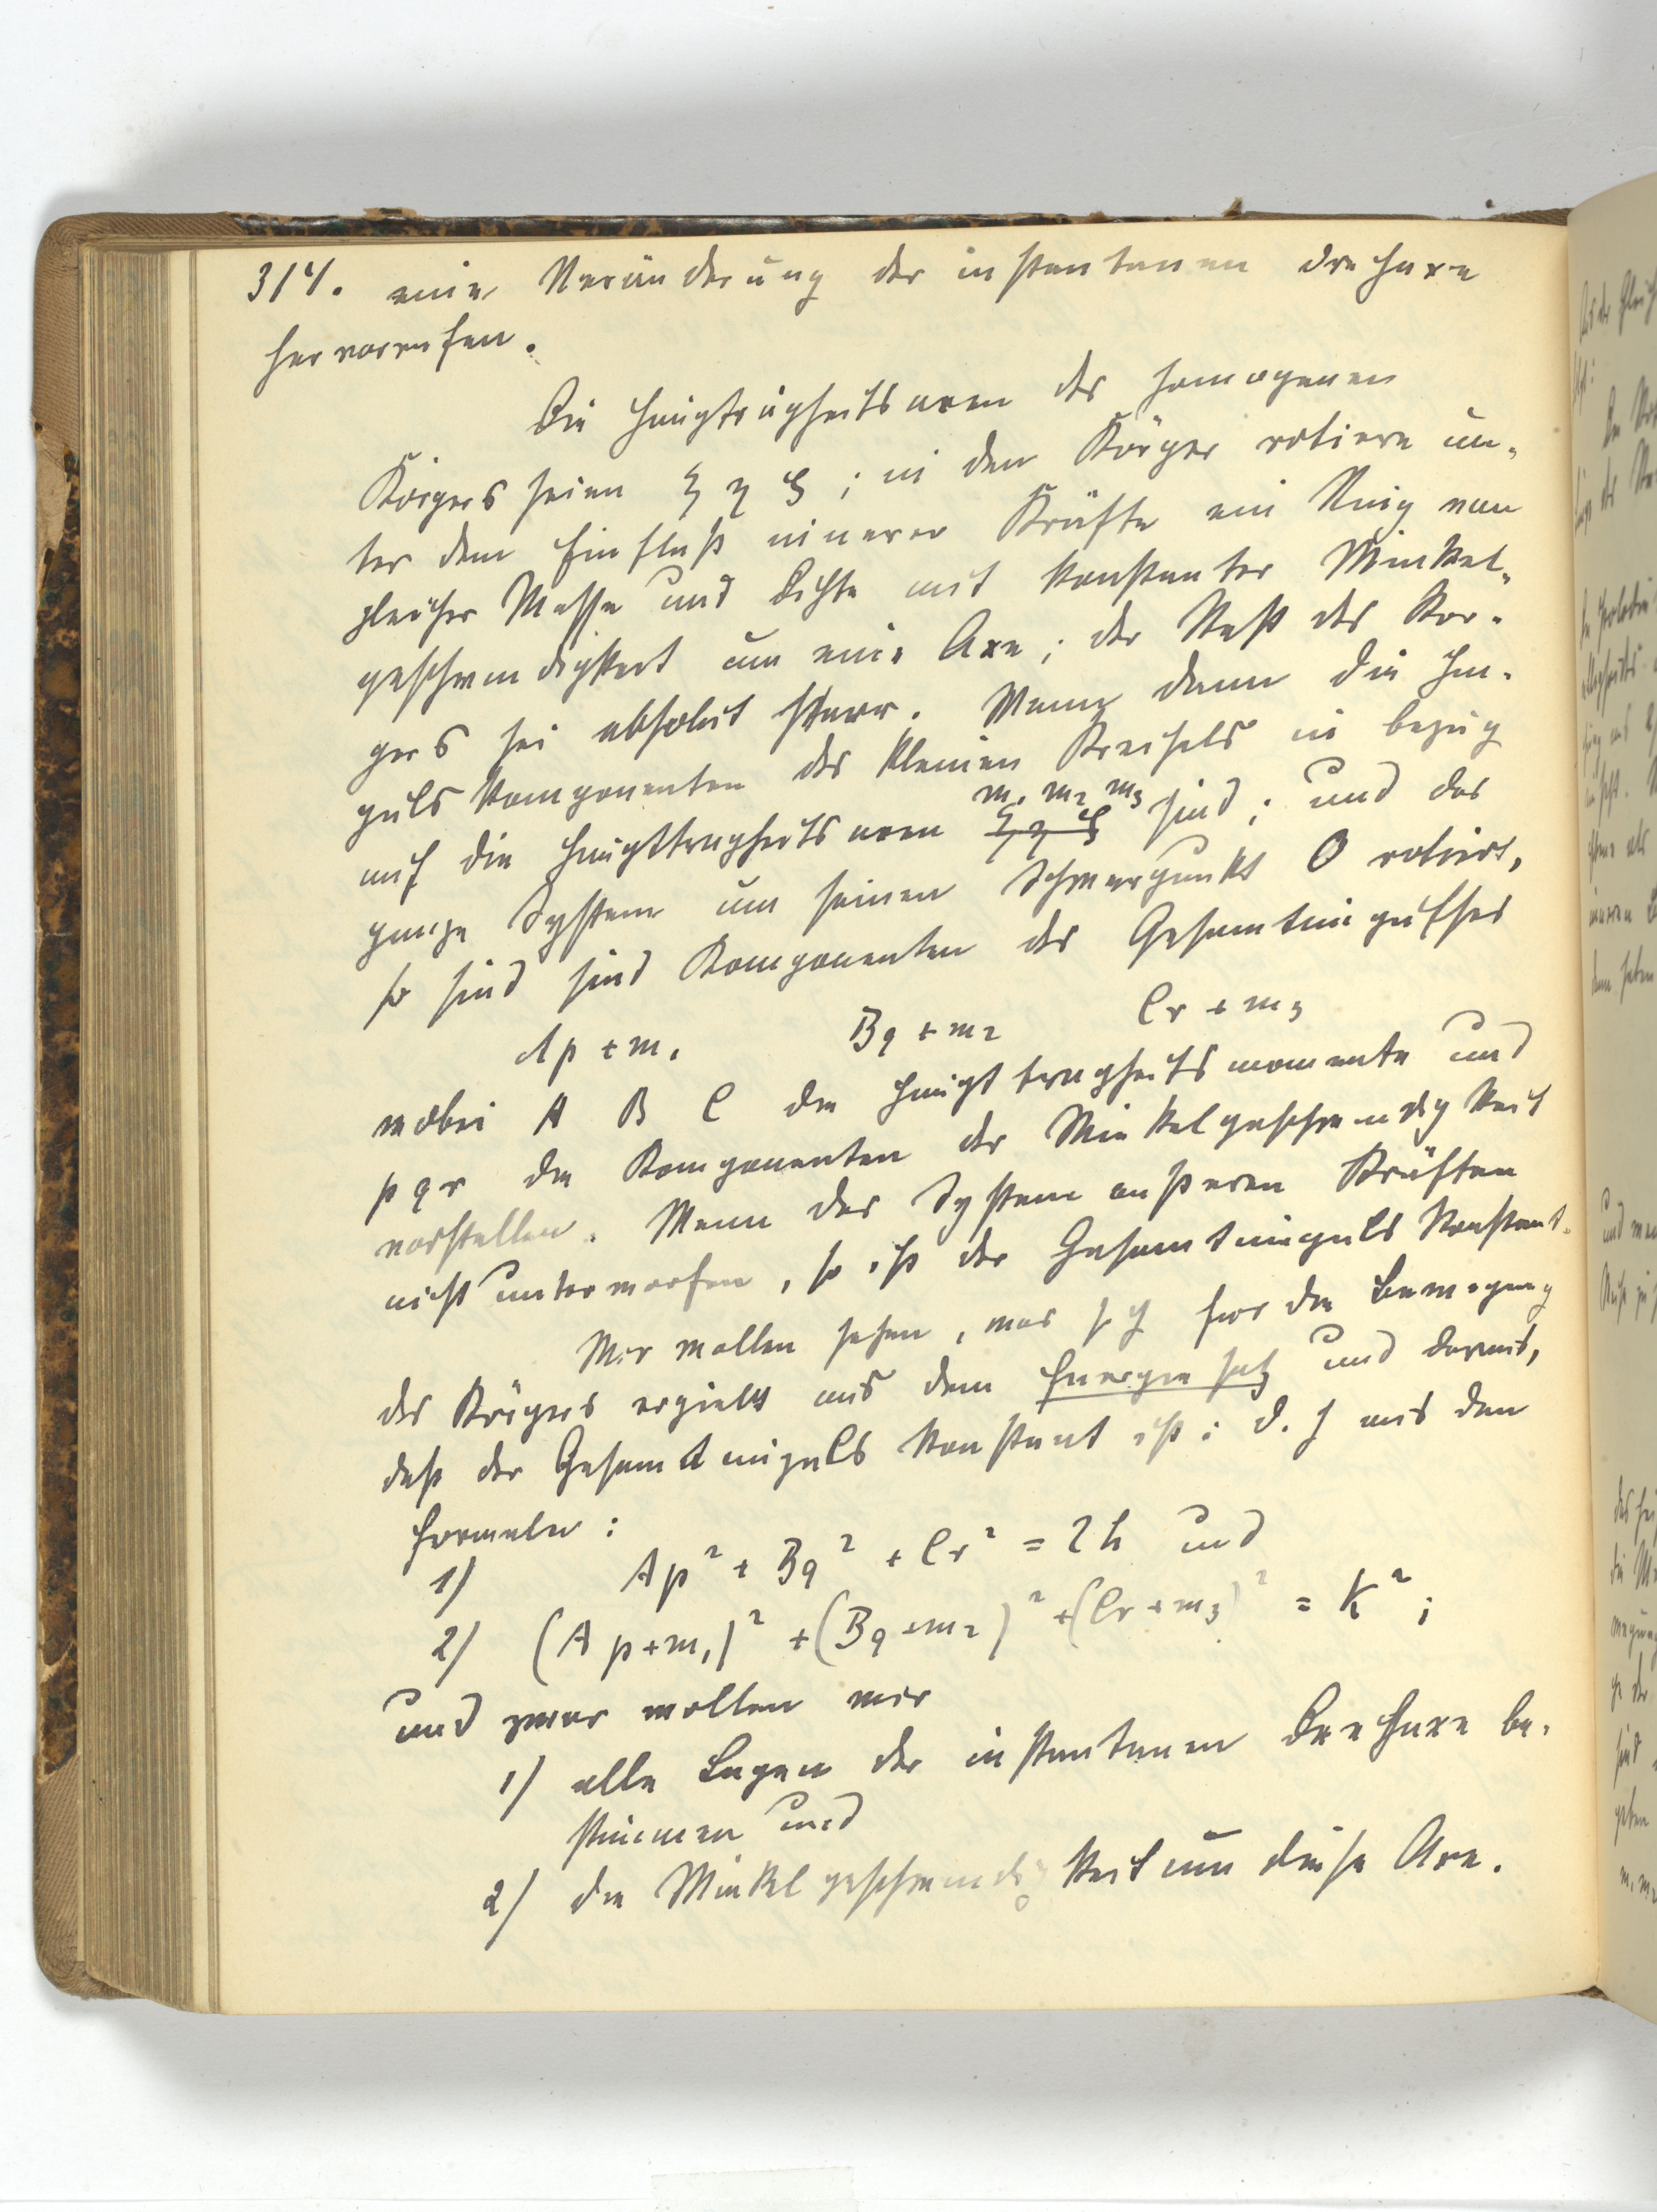 314. eine Veränderung der instantanen Drehaxe
hervorrufen.
Die Hauptträgheitsaxen des homogenen
Körpers seien ξ η ζ ; in dem Körper rotiere un-
ter dem Einfluß innerer Kräfte ein Ring von
gleicher Masse und Dichte mit konstanter Winkel-
geschwindigkeit um eine Axe ; der Rest des Kör-
pers sei absolut starr. Wenn dann die Im-
pulskomponenten des kleinen Kreisels in bezug
m₁ m₂ m₃
auf die Hauptträgheitsaxen ξ η ζ sind ; und das
ganze System um seinen Schwerpunkt O rotiert,
so sind sind Komponenten des Gesamtimpulses
Ap + m₁ Bq + m₂ Cr + m₃
wobei A B C die Hauptträgheitsmomente und
p q r die Komponenten der Winkelgeschwindigkeit
vorstellen. Wenn das System äußeren Kräften
nicht unterworfen, so ist der Gesamtimpuls konstant.
Wir wollen sehen, was sich für die Bewegung
des Körpers ergiebt aus dem Energiesatz und daraus,
daß der Gesamtimpuls konstant ist ; d. h aus den
Formeln :
1) Ap² + Bq² + Cr² = 2h und
2) (Ap + m₁)² + (Bq + m₂)² + (Cr + m₃)² = k² ;
und zwar wollen wir
1) alle Lagen der instantanen Drehaxe be-
stimmen und
2) die Winkelgeschwindigkeit um diese Axe.